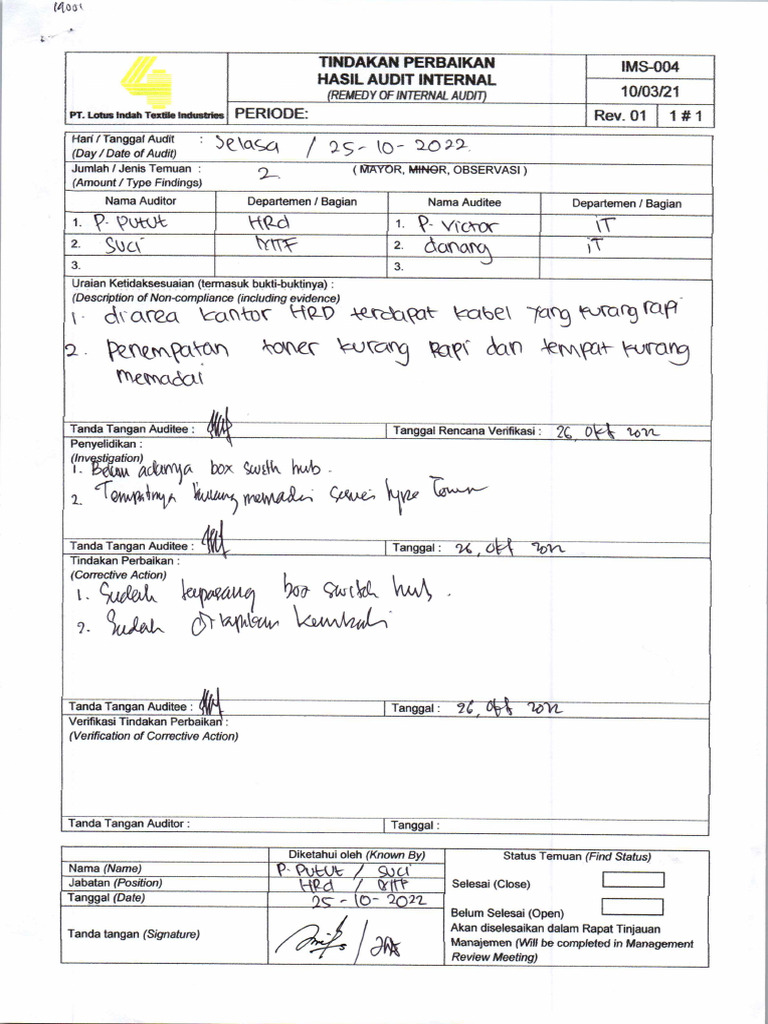 14001
TINDAKAN PERBAIKAN
HASIL AUDIT INTERNAL
(REMEDY OF INTERNAL AUDIT)
IMS-004
10/03/21
PT. Lotus Indah Textile Industries
PERIODE:
Rev. 01 1 # 1
Hari / Tanggal Audit : Selasa / 25-10-2022
(Day / Date of Audit)
Jumlah / Jenis Temuan : 2 ( MAYOR, MINOR, OBSERVASI )
(Amount / Type Findings)
Nama Auditor Departemen / Bagian Nama Auditee Departemen / Bagian
1. P. Putut HRd 1. P. Victor iT
2. Suci MTF 2. danang iT
3. 3.
Uraian Ketidaksesuaian (termasuk bukti-buktinya) :
(Description of Non-compliance (including evidence)
1. di area kantor HRD terdapat kabel yang kurang rapi
2. Penempatan toner kurang Rapi dan tempat kurang
memadai
Tanda Tangan Auditee : Tanggal Rencana Verifikasi : 26, Okt 2022
Penyelidikan :
(Investigation)
1. Belum adanya box swith hub.
2. Tempatnya kurang memadai sesuai type Toner
Tanda Tangan Auditee : Tanggal : 26, Okt 2022
Tindakan Perbaikan :
(Corrective Action)
1. Sudah terpasang box switch hub.
2. Sudah dirapikan kembali
Tanda Tangan Auditee : Tanggal : 26, Okt 2022
Verifikasi Tindakan Perbaikan :
(Verification of Corrective Action)
Tanda Tangan Auditor : Tanggal :
Diketahui oleh (Known By) Status Temuan (Find Status)
Nama (Name) P. Putut / Suci
Jabatan (Position) HRd / MTF
Selesai (Close)
Tanggal (Date) 25-10-2022
Belum Selesai (Open)
Tanda tangan (Signature)
Akan diselesaikan dalam Rapat Tinjauan
Manajemen (Will be completed in Management
Review Meeting)